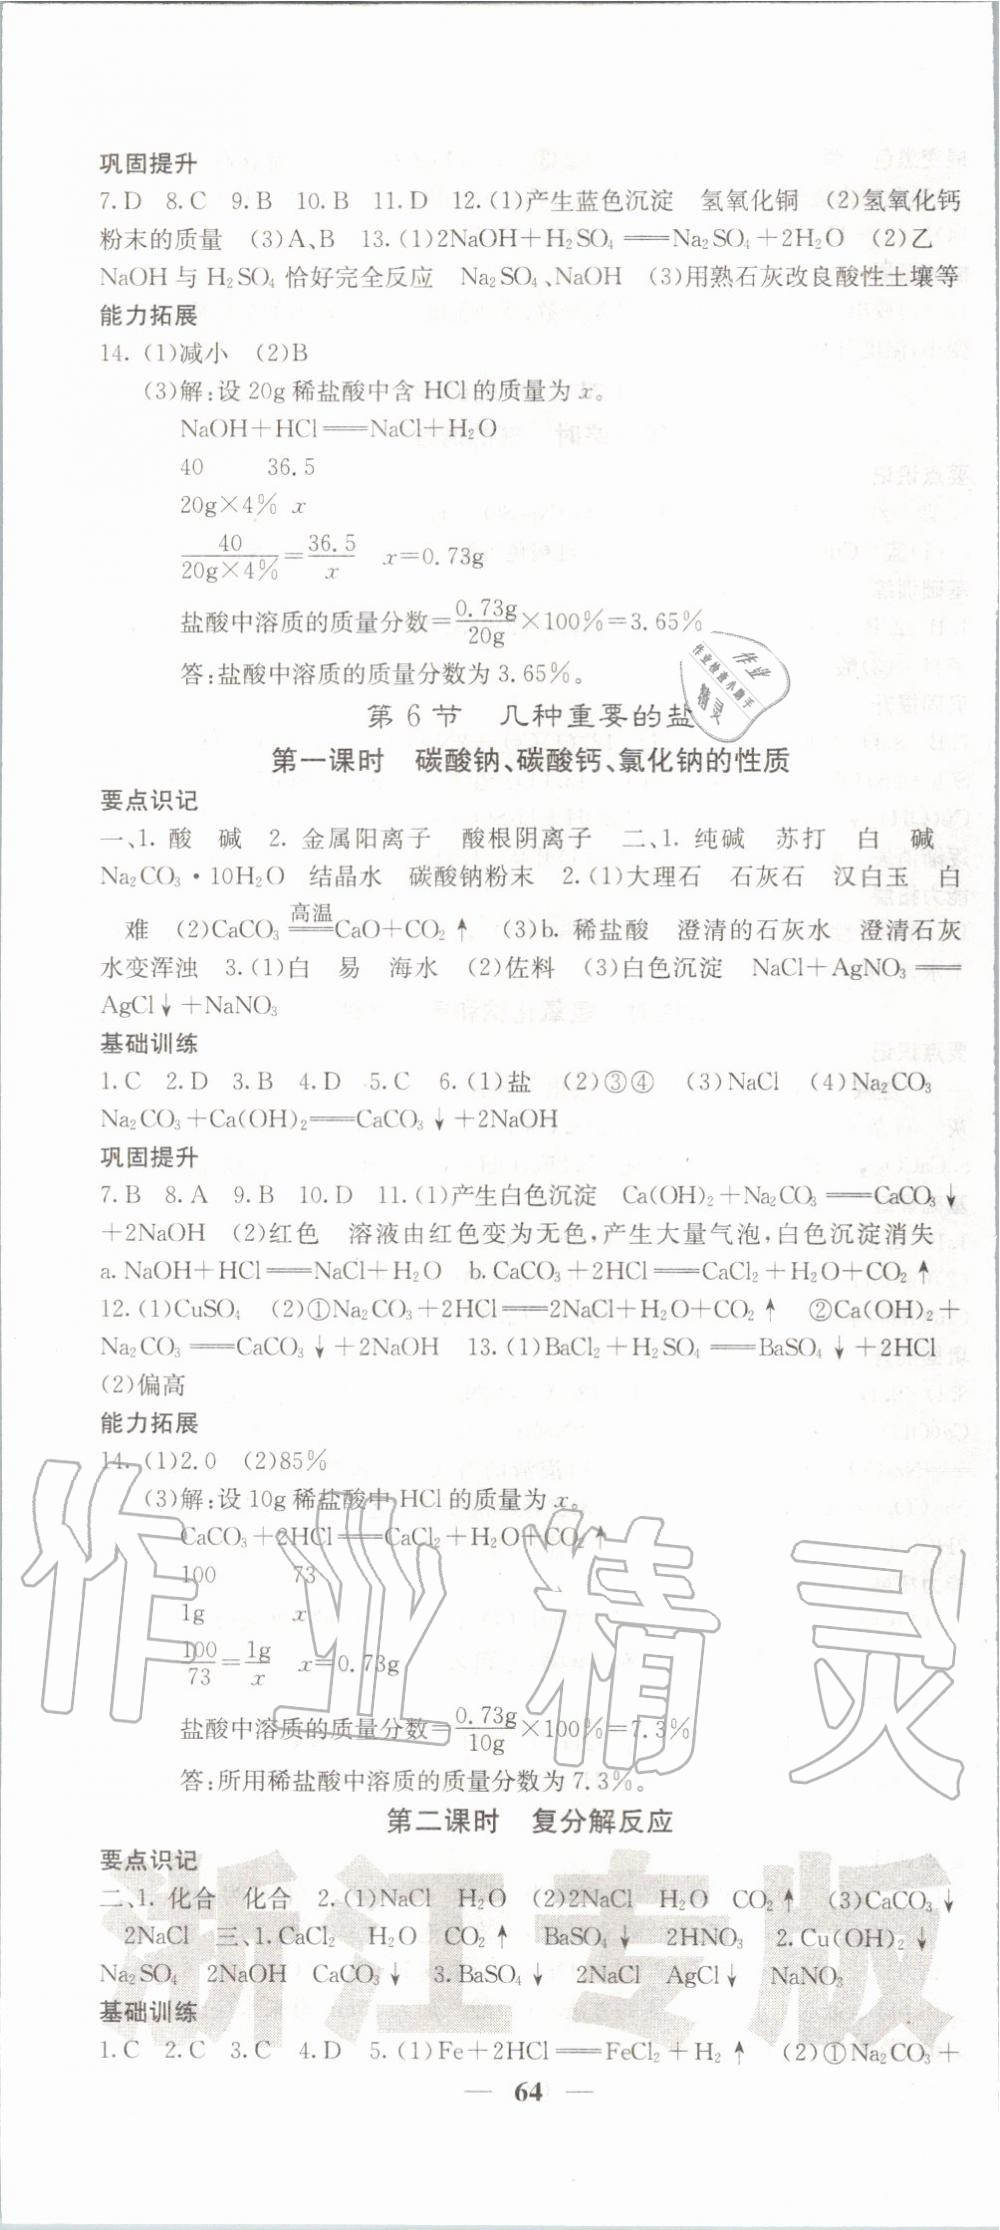 巩固提升
7.D 8.C 9.B 10.B 11.D 12.(1)产生蓝色沉淀 氢氧化铜 (2)氢氧化钙
粉末的质量 (3)A、B 13.(1)2NaOH+H₂SO₄══Na₂SO₄+2H₂O (2)乙
NaOH与H₂SO₄恰好完全反应 Na₂SO₄、NaOH (3)用熟石灰改良酸性土壤等
能力拓展
14.(1)减小 (2)B
(3)解:设20g稀盐酸中含HCl的质量为x。
NaOH+HCl══NaCl+H₂O
40 36.5
20g×4% x
40/(20g×4%)=36.5/x x=0.73g
盐酸中溶质的质量分数=0.73g/20g×100%=3.65%
答:盐酸中溶质的质量分数为3.65%。
作业
作业检查小助手
精灵
第6节 几种重要的盐
第一课时 碳酸钠、碳酸钙、氯化钠的性质
要点识记
一、1.酸 碱 2.金属阳离子 酸根阴离子 二、1.纯碱 苏打 白 碱
Na₂CO₃·10H₂O 结晶水 碳酸钠粉末 2.(1)大理石 石灰石 汉白玉 白
难 (2)CaCO₃ 高温══ CaO+CO₂↑ (3)b.稀盐酸 澄清的石灰水 澄清石灰
水变浑浊 3.(1)白 易 海水 (2)佐料 (3)白色沉淀 NaCl+AgNO₃══
AgCl↓+NaNO₃
基础训练
1.C 2.D 3.B 4.D 5.C 6.(1)盐 (2)③④ (3)NaCl (4)Na₂CO₃
Na₂CO₃+Ca(OH)₂══CaCO₃↓+2NaOH
巩固提升
7.B 8.A 9.B 10.D 11.(1)产生白色沉淀 Ca(OH)₂+Na₂CO₃══CaCO₃↓
+2NaOH (2)红色 溶液由红色变为无色,产生大量气泡,白色沉淀消失
a.NaOH+HCl══NaCl+H₂O b.CaCO₃+2HCl══CaCl₂+H₂O+CO₂↑
12.(1)CuSO₄ (2)①Na₂CO₃+2HCl══2NaCl+H₂O+CO₂↑ ②Ca(OH)₂+
Na₂CO₃══CaCO₃↓+2NaOH 13.(1)BaCl₂+H₂SO₄══BaSO₄↓+2HCl
(2)偏高
能力拓展
14.(1)2.0 (2)85%
(3)解:设10g稀盐酸中HCl的质量为x。
CaCO₃+2HCl══CaCl₂+H₂O+CO₂↑
100 73
1g x
100/73=1g/x x=0.73g
盐酸中溶质的质量分数=0.73g/10g×100%=7.3%
答:所用稀盐酸中溶质的质量分数为7.3%。
作业精灵
第二课时 复分解反应
要点识记
二、1.化合 化合 2.(1)NaCl H₂O (2)2NaCl H₂O CO₂↑ (3)CaCO₃↓
2NaCl 三、1.CaCl₂ H₂O CO₂↑ BaSO₄↓ 2HNO₃ 2.Cu(OH)₂↓
Na₂SO₄ 2NaOH CaCO₃↓ 3.BaSO₄↓ 2NaCl AgCl↓ NaNO₃
浙江专版
基础训练
1.C 2.C 3.C 4.D 5.(1)Fe+2HCl══FeCl₂+H₂↑ (2)①Na₂CO₃+
— 64 —